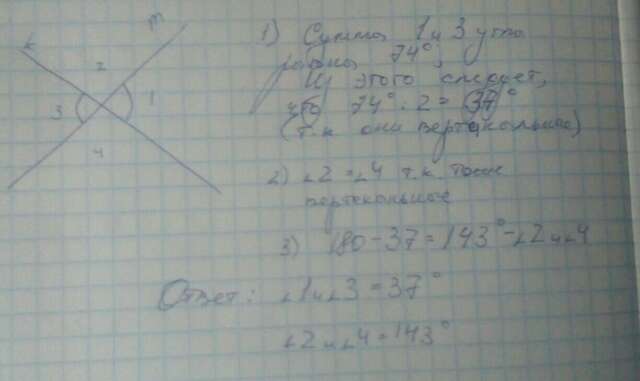 k
m
2
3
1
4
1) Сумма 1 и 3 угла
равна 74°,
Из этого следует,
что 74° : 2 = 37°
(т.к они вертекольные)
2) ∠2 = ∠4 т.к. тоже
вертекольные
3) 180 - 37 = 143° - ∠2 и ∠4
Ответ: ∠1 и ∠3 = 37°
∠2 и ∠4 = 143°